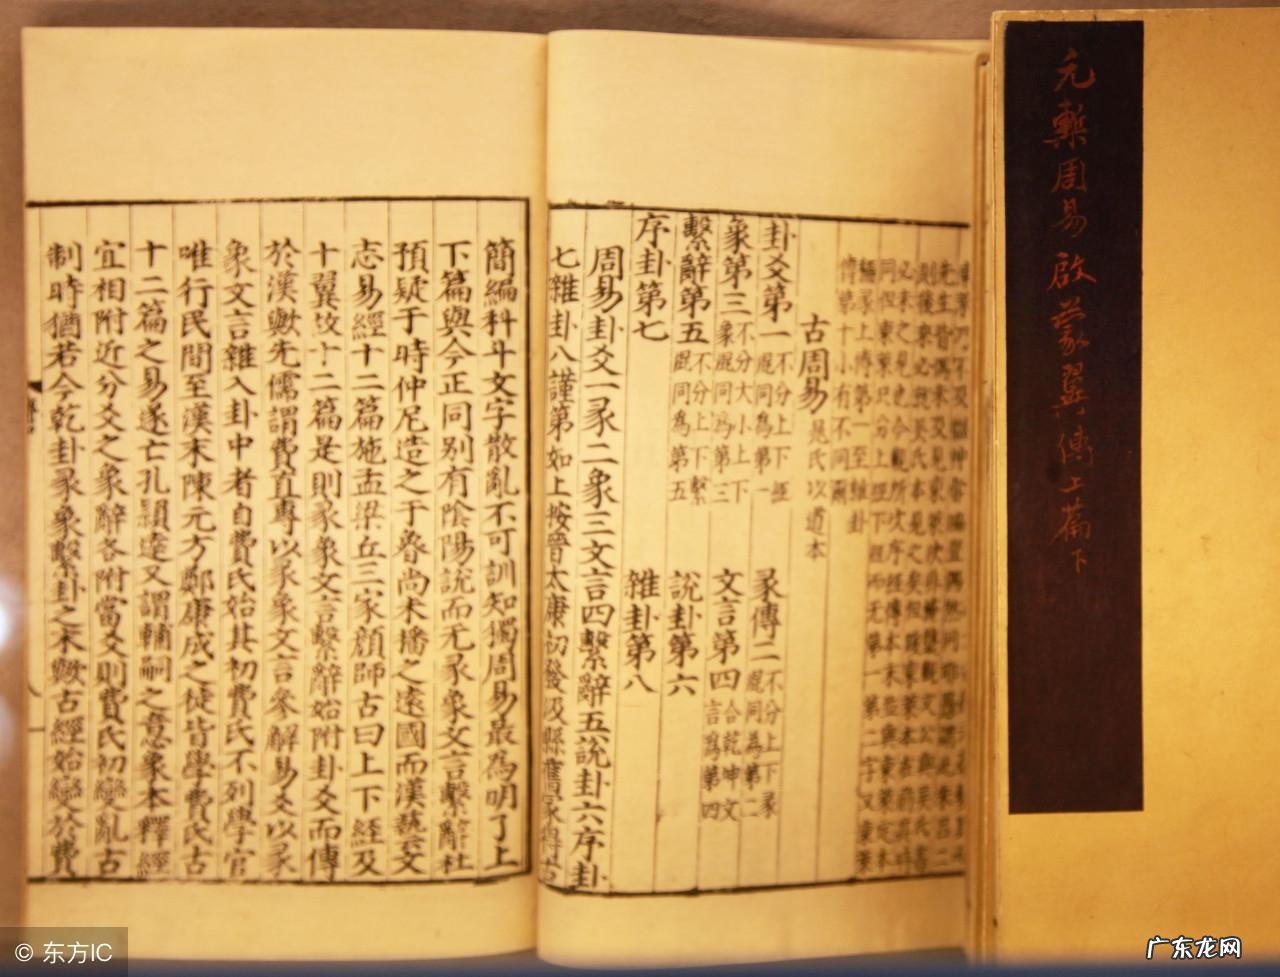 元槧周易啟蒙翼傳上篇下
同四東萊只分上經下經而无第一第二字又東萊
編彖上傳第一至雜卦
傳第十小有不同爾
古周易 晁氏以道本
卦爻第一 不分上下經混同為第一 彖傳二 不分上下彖混同為第二
象第三 不分大小上下象混同為第三 文言第四 合乾坤文言為第四
繫辭第五 不分上下繫混同為第五 說卦第六
序卦第七 雜卦第八
周易卦爻一彖二象三文言四繫辭五說卦六序卦
七雜卦八謹第如上按晉太康初發汲縣舊冢得古
簡編科斗文字散亂不可訓知獨周易最為明了上
下篇與今正同别有陰陽說而无彖象文言繫辭杜
預疑于時仲尼造之于魯尚未播之遠國而漢藝文
志易經十二篇施孟梁丘三家顔師古曰上下經及
十翼故十二篇是則彖象文言繫辭始附卦爻而傳
於漢歟先儒謂費直專以彖象文言參解易爻以彖
象文言雜入卦中者自費氏始其初費氏不列學官
唯行民間至漢末陳元方鄭康成之徒皆學費氏古
十二篇之易遂亡孔穎達又謂輔嗣之意象本釋經
宜相附近分爻之象辭各附當爻則費氏初變亂古
制時猶若今乾卦彖象繫卦之末歟古經始變於費
© 东方IC
广东龙网